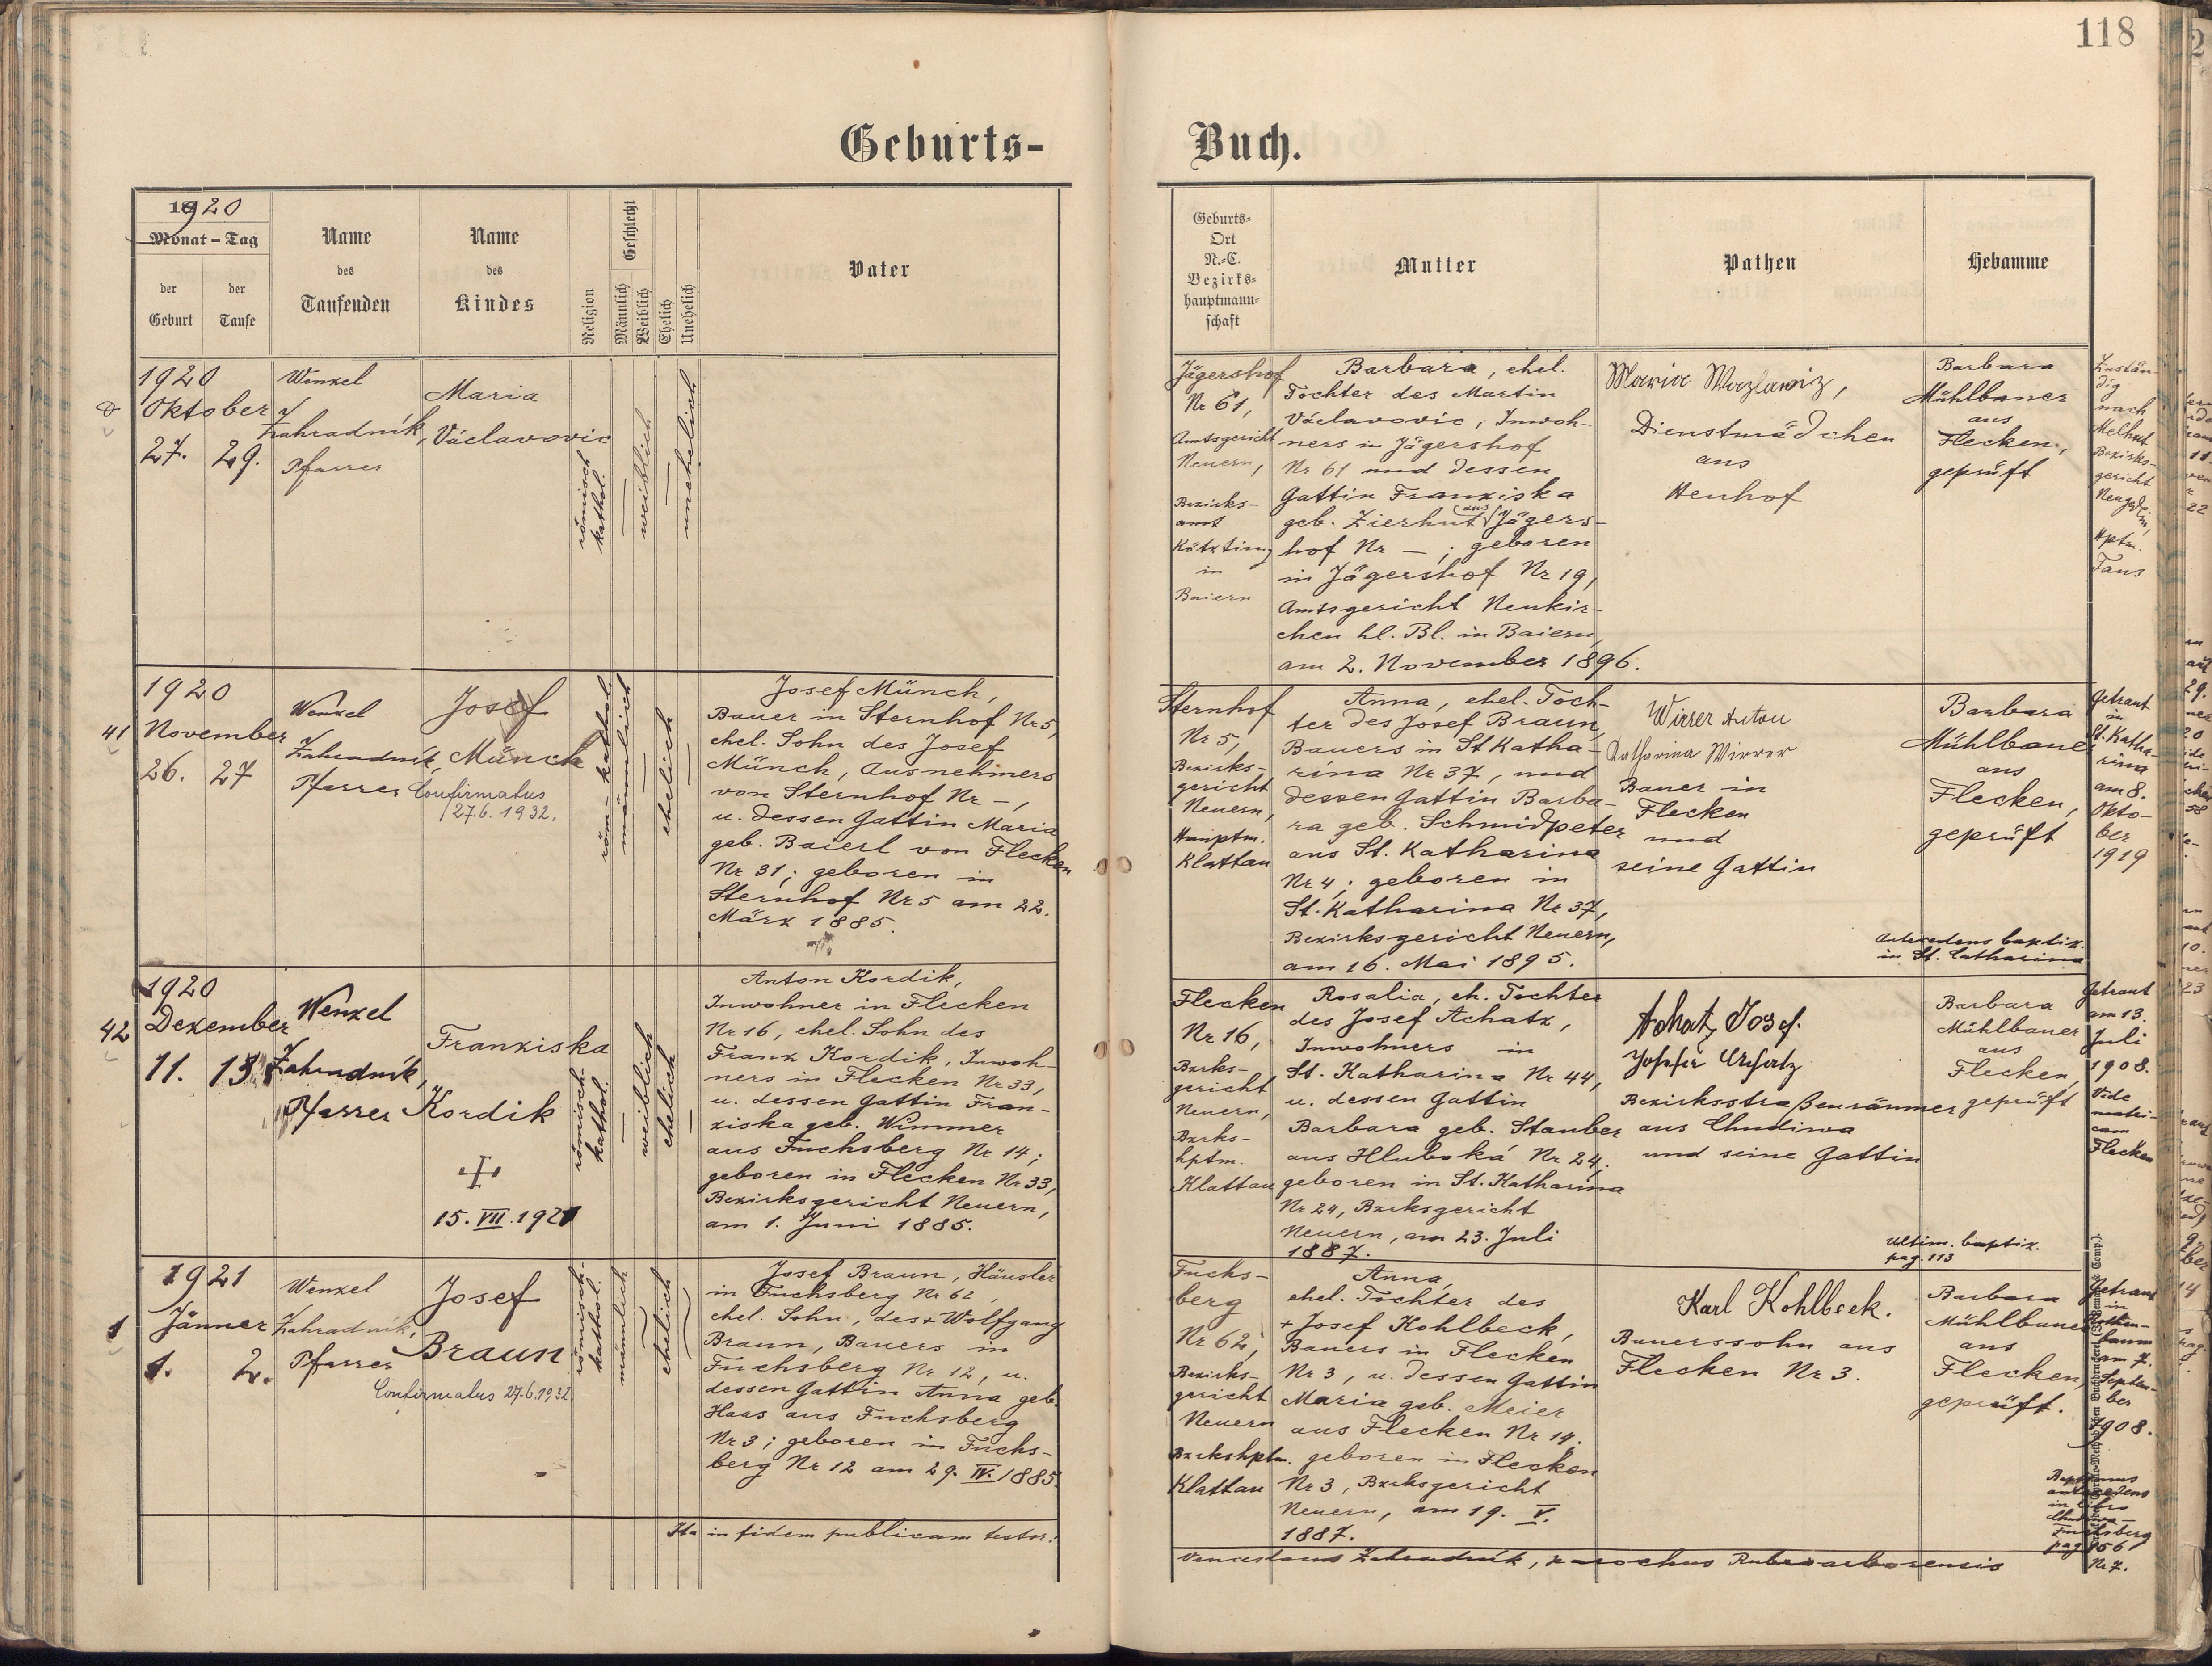 118
Geburts-
Buch.
1920
Monat - Tag
der
Geburt
der
Taufe
Name
des
Taufenden
Name
des
Kindes
Religion
Geschlecht
Männlich
Weiblich
Ehelich
Unehelich
Vater
Geburts-
Ort
N.-C.
Bezirks-
hauptmann-
schaft
Mutter
Pathen
Hebamme
1920
Oktober
27. 29.
Wenzel
Zahradník,
Pfarrer
Maria
Václavovic
römisch
kathol.
weiblich
unehelich
Jägershof
Nr 61,
Amtsgericht
Neuern,
Bezirks-
amt
Kötzting
in
Baiern
Barbara, ehel.
Tochter des Martin
Václavovic, Inwoh-
ners in Jägershof
Nr 61 und dessen
Gattin Franziska
geb. Zierhut aus Jägers-
hof Nr — ; geboren
in Jägershof Nr 19,
Amtsgericht Neukir-
chen hl. Bl. in Baiern,
am 2. November 1896.
Maria Wazlawiz,
Dienstmädchen
aus
Barbara
Mühlbauer
aus
Flecken,
geprüft
Zustän-
dig
nach
Melhut
Bezirks-
gericht
Hptm.
Taus
41
1920
November
26. 27
Wenzel
Zahradník,
Pfarrer
Josef
Münch
Confirmatus
27.6.1932.
röm-kathol.
männlich
ehelich
Josef Münch,
Bauer in Sternhof Nr 5,
ehel. Sohn des Josef
Münch, Ausnehmers
von Sternhof Nr —,
u. dessen Gattin Maria
geb. Baierl von Flecken
Nr 31; geboren in
Sternhof Nr 5 am 22.
März 1885.
Sternhof
Nr 5,
Bezirks-
gericht
Neuern,
Hauptm.
Klattau
Anna, ehel. Toch-
ter des Josef Braun,
Bauers in St. Katha-
rina Nr 37, und
dessen Gattin Barba-
ra geb. Schmidpeter
aus St. Katharina
Nr 4; geboren in
St. Katharina Nr 37,
Bezirksgericht Neuern,
am 16. Mai 1895.
Wirrer Anton
Katharina Wirrer
Bauer in
Flecken
und
seine Gattin
Barbara
Mühlbauer
aus
Flecken,
geprüft
Getraut
in
St. Katha-
rina
am 8.
Okto-
ber
1919
Antecedens baptiz.
in St. Catharina
42
1920
Dezember
11. 13
Wenzel
Zahradník,
Pfarrer
Franziska
Kordik
15. VII. 1921
römisch-
kathol.
weiblich
ehelich
Anton Kordik,
Inwohner in Flecken
Nr 16, ehel. Sohn des
Franz Kordik, Inwoh-
ners in Flecken Nr 33,
u. dessen Gattin Fran-
ziska geb. Wimmer
aus Fuchsberg Nr 14;
geboren in Flecken Nr 33,
Bezirksgericht Neuern,
am 1. Juni 1885.
Flecken
Nr 16,
Bzrks-
gericht
Neuern,
Bzrks-
hptm.
Klattau
Rosalia, eh. Tochter
des Josef Achatz,
Inwohners in
St. Katharina Nr 44,
u. dessen Gattin
Barbara geb. Stauber
aus Hluboká Nr 24,
geboren in St. Katharina
Nr 24, Bzrksgericht
Neuern, am 23. Juli
1887.
Achatz Josef.
Josefa Achatz
Bezirksstraßenräumer
aus Chudiwa
und seine Gattin
Barbara
Mühlbauer
aus
Flecken,
geprüft
Getraut
am 13.
Juli
1908.
Vide
matri-
cam
Flecken
Ultim. baptiz.
pag 113
1
1921
Jänner
1. 2.
Wenzel
Zahradník,
Pfarrer
Josef
Braun
Confirmatus 27.6.1932.
römisch-
kathol.
männlich
ehelich
Josef Braun, Häusler
in Fuchsberg Nr 62,
ehel. Sohn, des + Wolfgang
Braun, Bauers in
Fuchsberg Nr 12, u.
dessen Gattin Anna geb.
Haas aus Fuchsberg
Nr 3; geboren in Fuchs-
berg Nr 12 am 29. IV. 1885.
Fuchs-
berg
Nr 62,
Bezirks-
gericht
Neuern
Bzrkshptm.
Klattau
Anna,
ehel. Tochter des
+ Josef Kohlbeck,
Bauers in Flecken
Nr 3, u. dessen Gattin
Maria geb. Meier
aus Flecken Nr 14.
geboren in Flecken
Nr 3, Bzrksgericht
Neuern, am 19. V.
1887.
Karl Kohlbeck.
Bauerssohn aus
Flecken Nr 3.
Barbara
Mühlbauer
aus
Flecken,
geprüft.
Getraut
in
Rothen-
baum
am 7.
Septem-
ber
1908.
Baptismus
antecedens
in libro
Chudiwa-
Fuchsberg
pag 156
Nr 7.
Ita in fidem publicam testor:
Venceslaus Zahradník, parochus Rubroarborensis